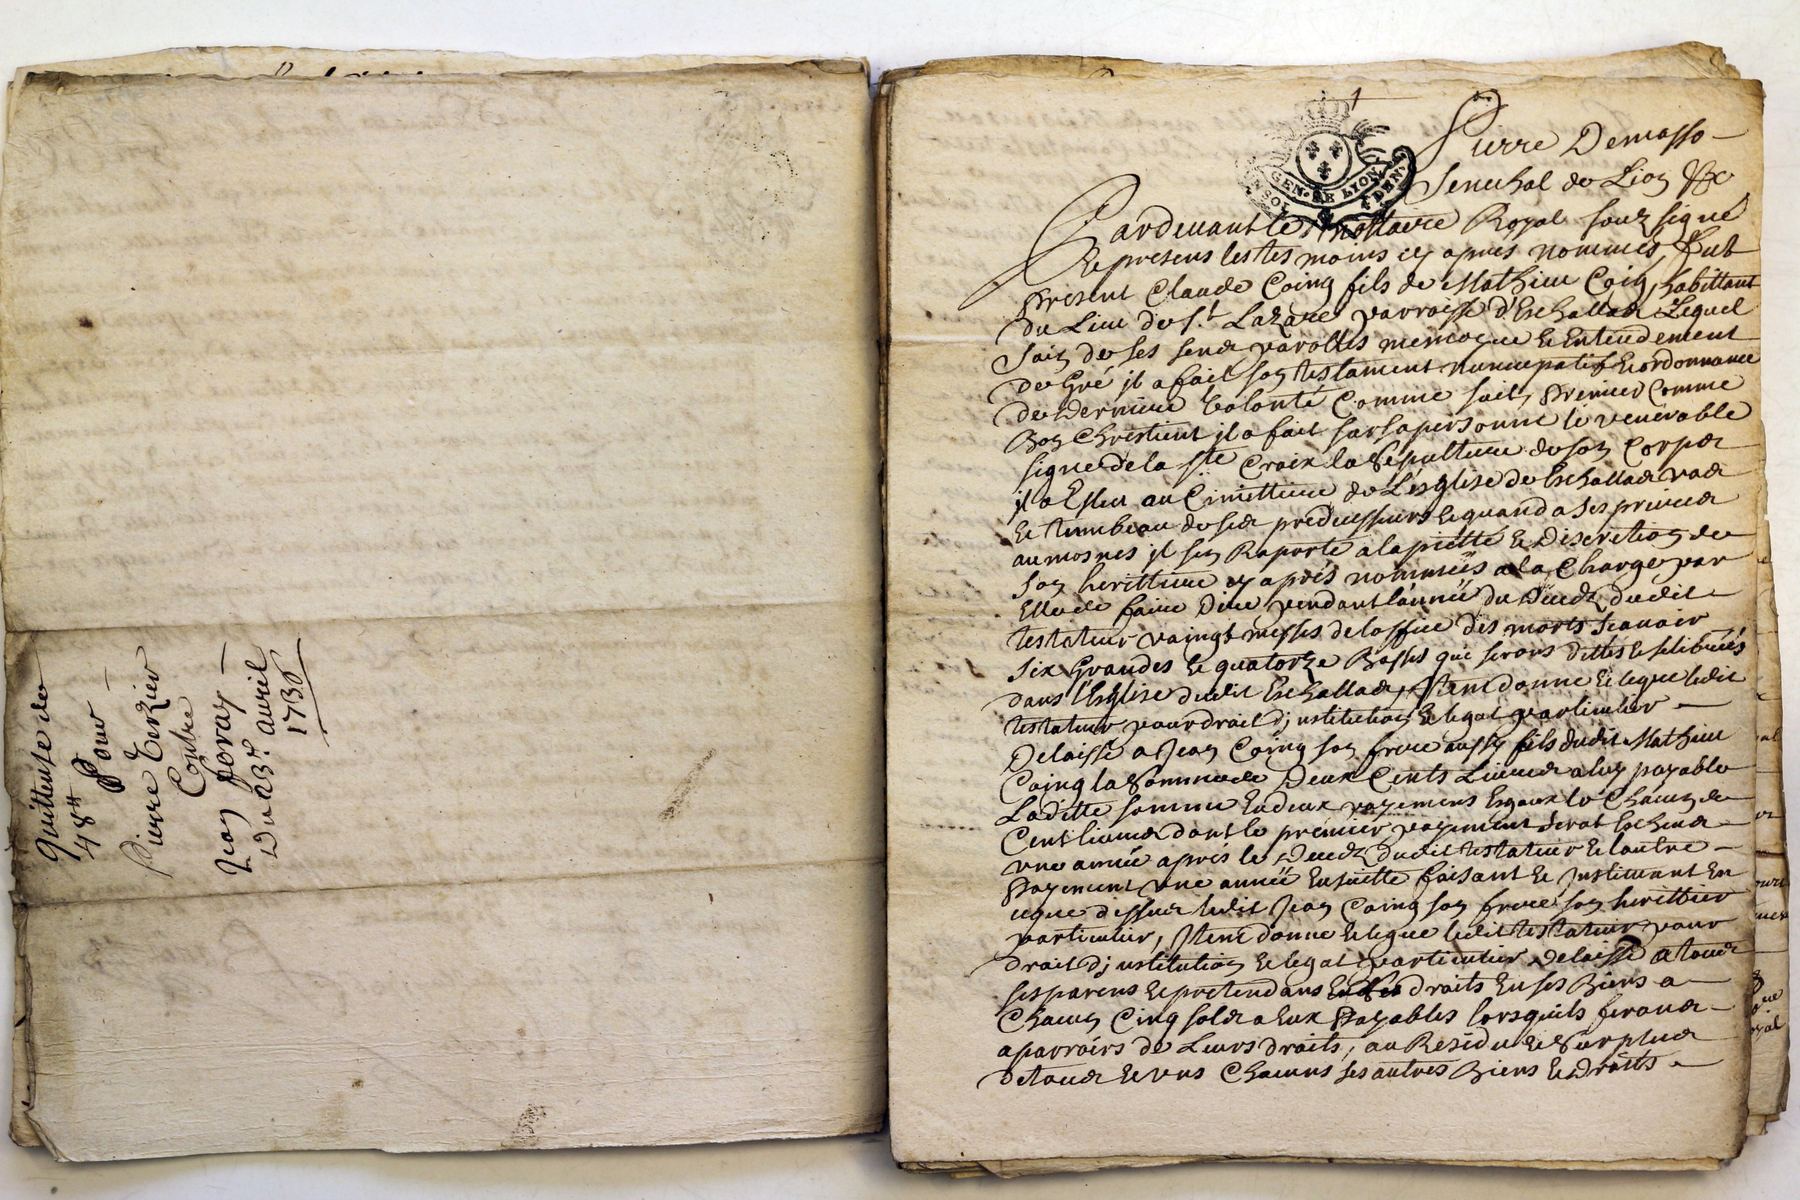 quittense de
48#
Pour
Pierre Terzier
Contre
Jean foray
Du 23e. avril
1730
GEN. DE LYON
Pierre Demasso
Senechal de Lion &c
Pardevant le Nottaire Royal souz signé
Et presens les tes moins cy apres nommés, fut
present Claude Coing fils de Mathieu Coing, habittant
du Lieu de St. Lazare parroisse d'Eschallas Lequel
sain de ses sens parolles memoyre Et Entendement
de Gré jl a fait son testament nuncupatif Et ordonnance
de Derniere Volonté Comme sait, Premier Comme
Bon Chrestient jl a fait sur sa personne le venerable
signe de la Ste Croix la Sepulture de son Corps
jl a Esleu au Cimettiere de L'esglise de Eschallas
Et tumbeau de ses predecessurs Et quand a ses
aumosnes jl sen Raporte a la piette Et Discretion de
son herittiere cy aprés nommeés a la Charge par
Elle de faire Dire pendant l'année du Decedz dudit
testateur vaingt messes de loffice des morts scavoir
six Grandes Et quatorze Basses qui serons dittes Et selibreés
dans l'Esglise dudit Eschallas, Jtem donne Et legue ledit
testateur pour droit dj nstitution Et legat particulier
Delaissé a Jean Coing son frere aussy fils dudit Mathieu
Coing la Somme de Deux Cents Livres a luy payable
Laditte somme En deux payemens Esgaux le Chacun de
Cent livres dont le premier payement serat Escheu
vne année aprés le Decedz dudit testateur Et lautre
Payement vne année Ensuitte faisant Et Jnstituant En
ce que dessus ledit Jean Coing son frere son herittier
particulier, Jtem donne Et legue ledit testateur pour
droit dj nstitution Et legat particulier Delaissé a tous
ses parens Et pretendans droits En ses Biens a
Chacun Cinq sols a Eux Payables lorsquils feront
aparroirs de Leurs droits, au Residu Et Surplus
de tous Et vns Chacuns ses autres Biens Et Droits